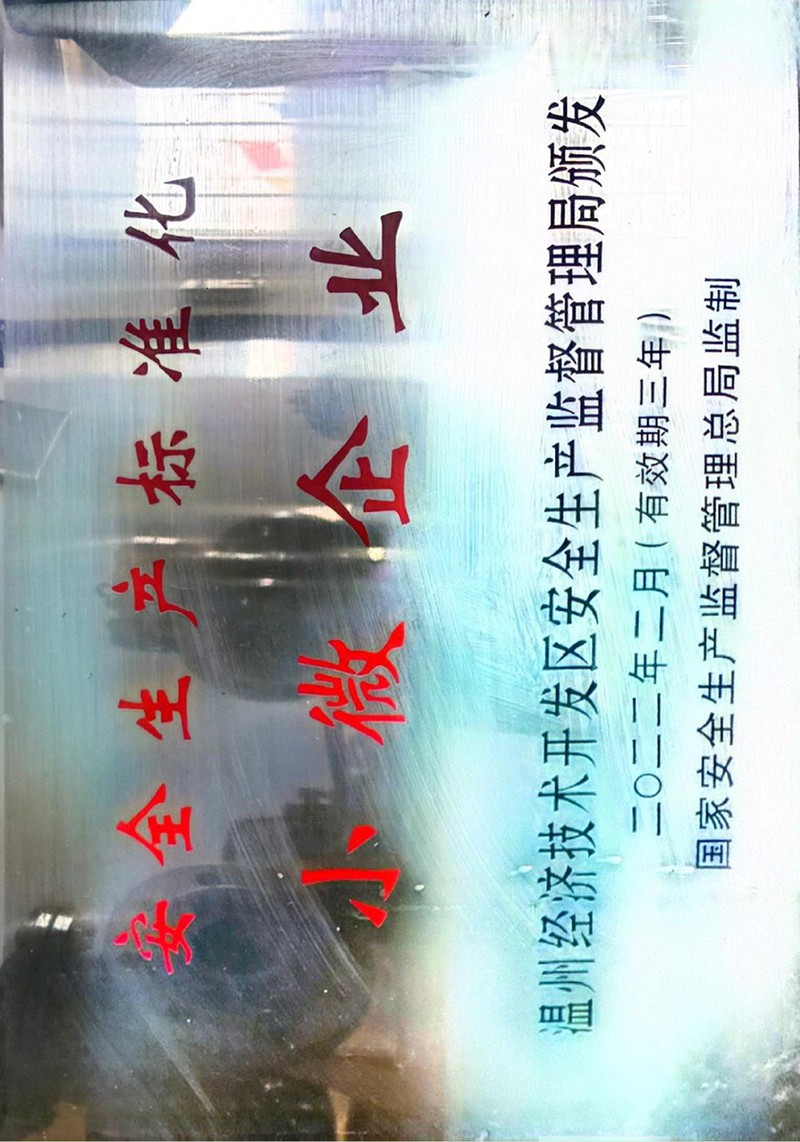 安全生产标准化
小微企业
温州经济技术开发区安全生产监督管理局颁发
二〇二二年二月(有效期三年)
国家安全生产监督管理总局监制